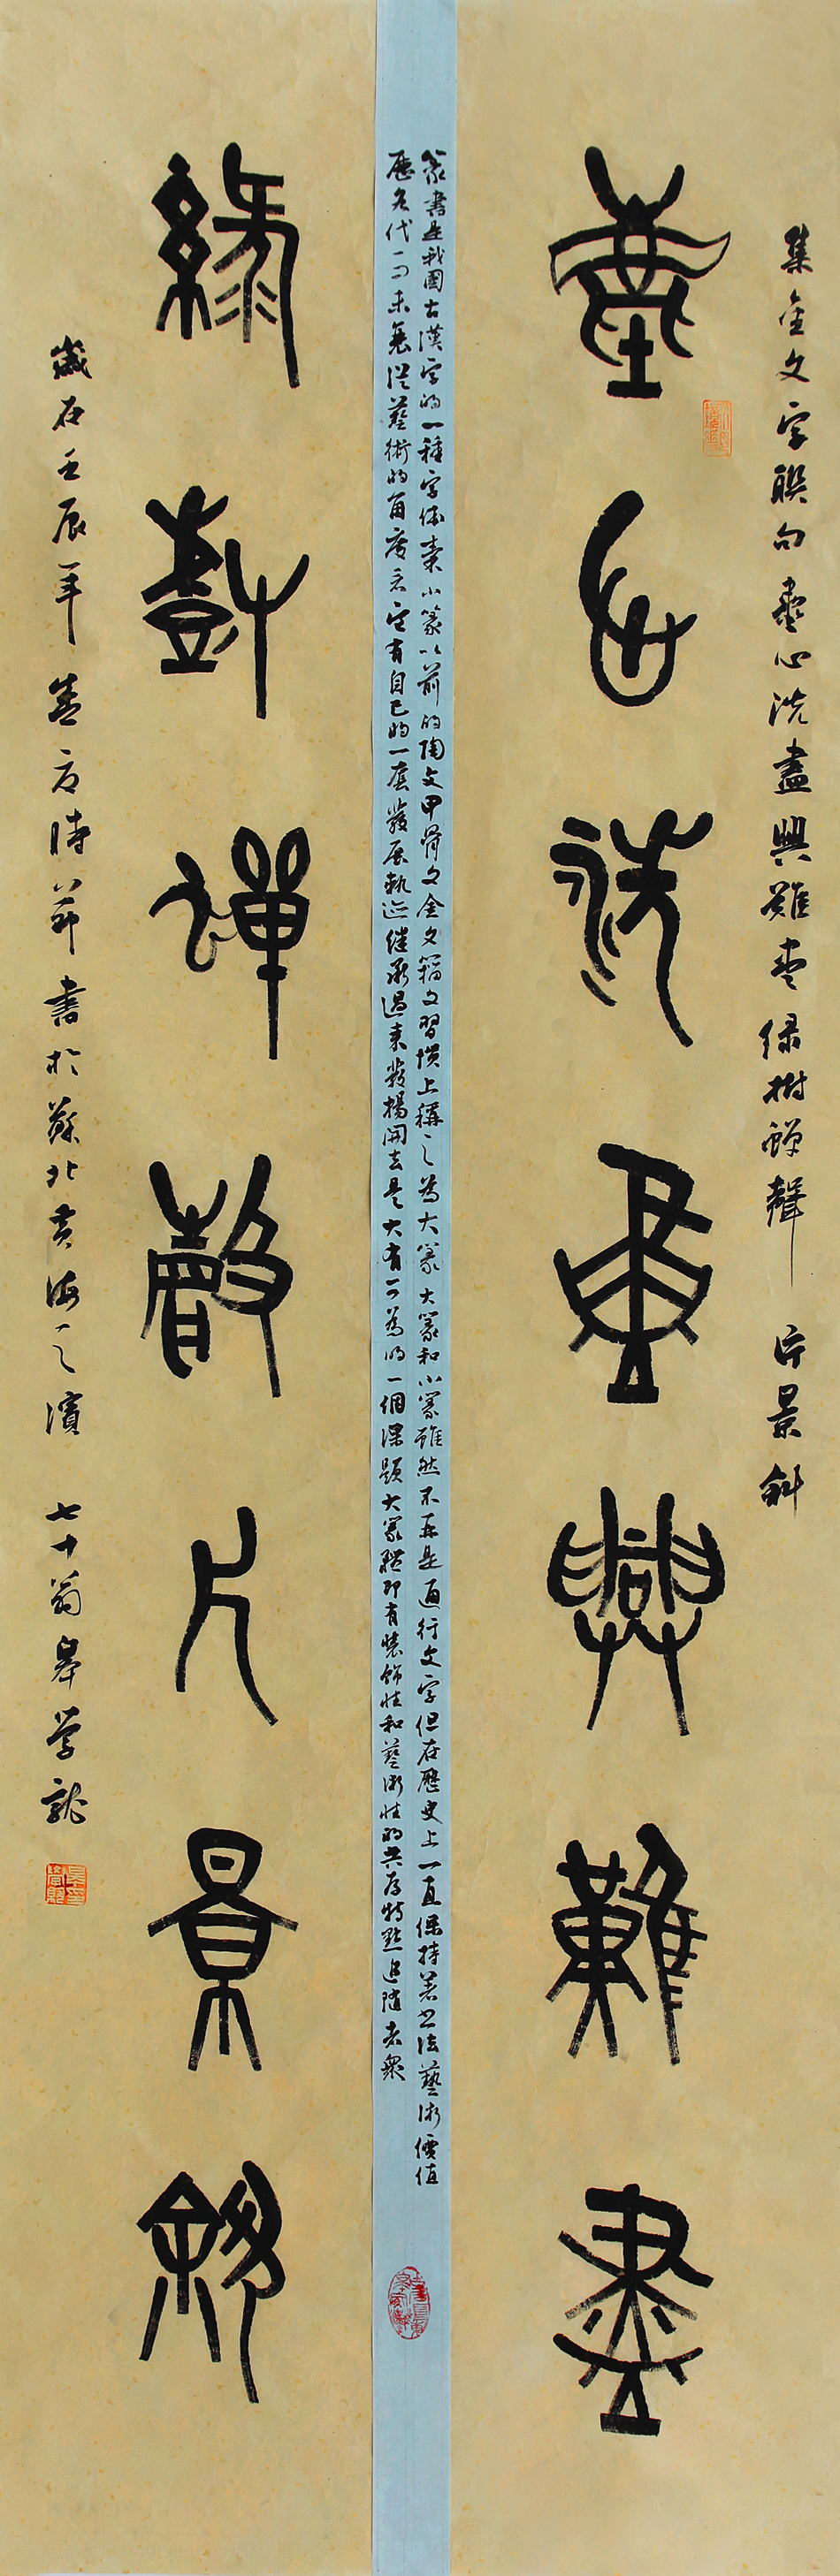 集金文字聯句塵心洗盡興難盡绿樹蟬聲片景斜
塵心洗盡興難盡
篆書是我國古漢字的一種字体秦小篆以前的陶文甲骨文金文籀文習慣上稱之為大篆大篆和小篆雖然不再是通行文字但在歷史上一直保持着書法藝術價值
歷多代而未衰從藝術的角度看它有自己的一套發展軌迹繼承過來發揚開去是大有可為的一個課題大篆體即有裝飾性和藝術性的共存特點追隨者衆
綠樹蟬聲片景斜
歲在壬辰年盛夏時節書於蘇北黄海之濱 七十翁皋学龍